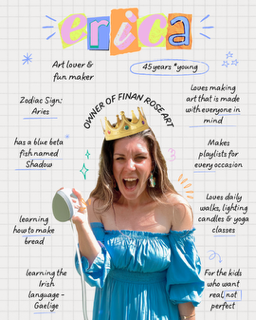 erica
Art lover &
fun maker
45 years *young
OWNER OF FINAN ROSE ART
Zodiac Sign:
Aries
Loves making
art that is made
with everyone in
mind
has a blue beta
fish named
Shadow
Makes
playlists for
every occasion
learning
how to make
bread
Loves daily
walks, lighting
candles & yoga
classes
learning the
Irish
language -
Gaelige
For the kids
who want
real, not
perfect